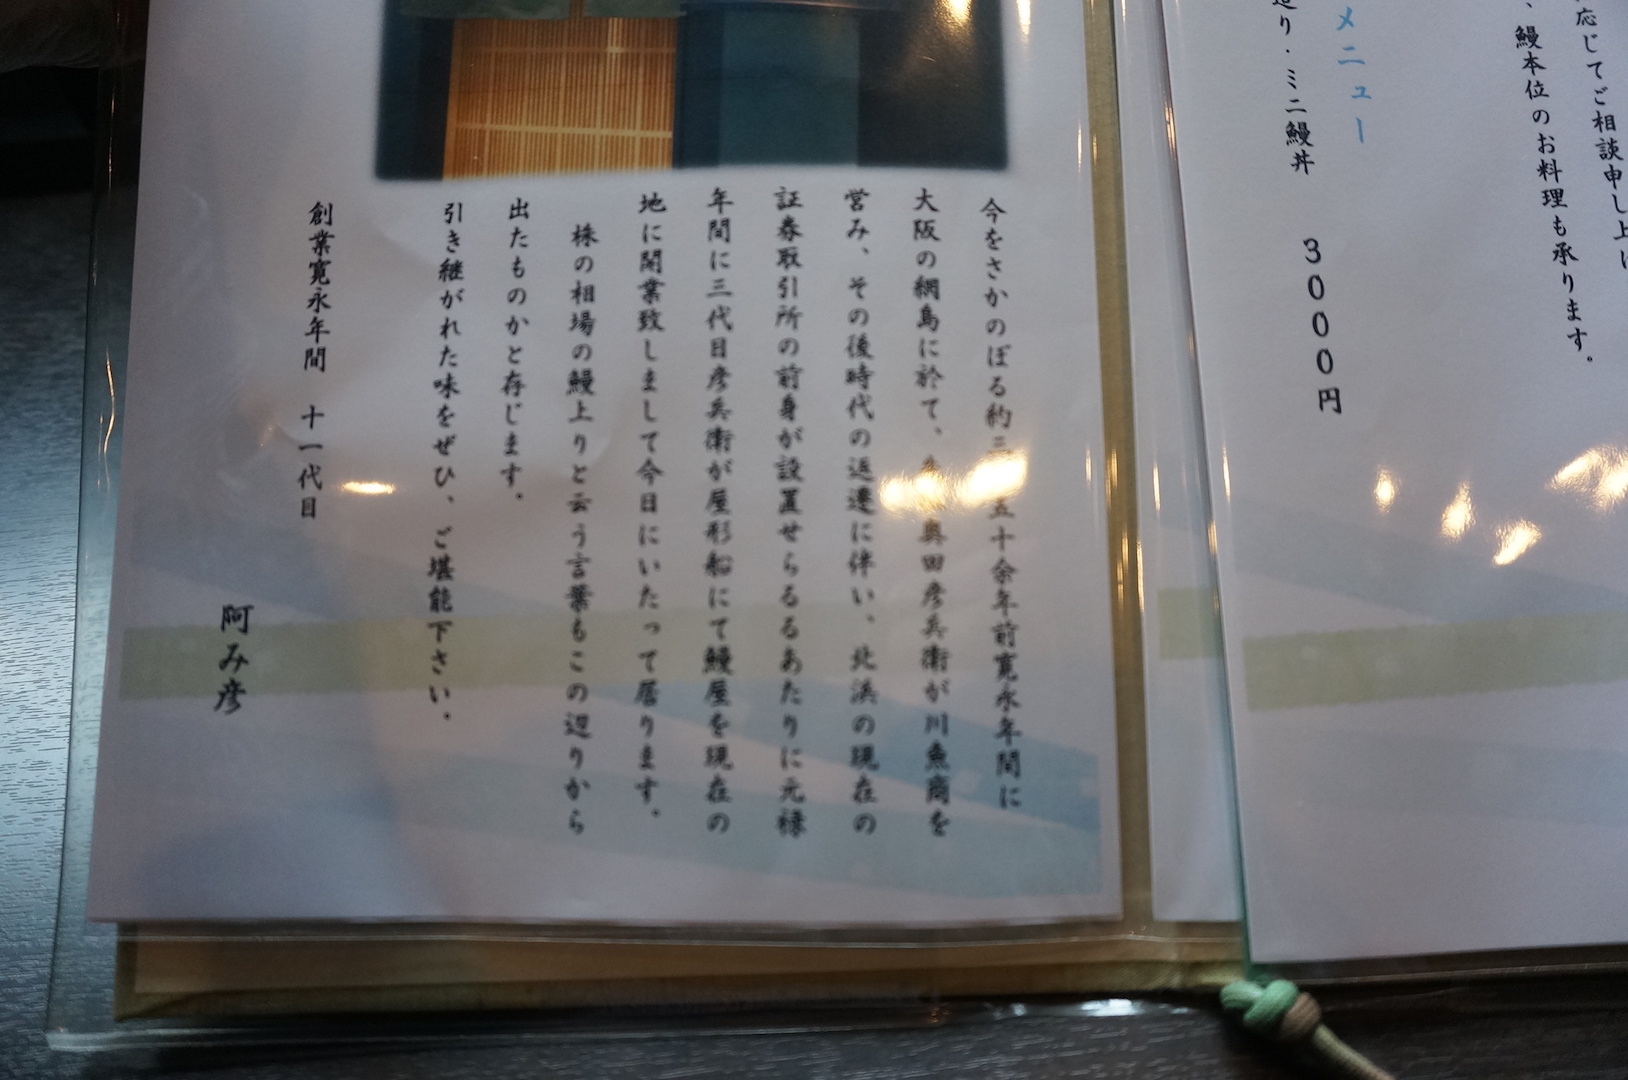 応じてご相談申し上げ
、鰻本位のお料理も承ります。
メニュー
造り・ミニ鰻丼 3000円
今をさかのぼる約三 五十余年前寛永年間に
大阪の網島に於て、 奥田彦兵衛が川魚商を
営み、その後時代の返遷に伴い、北浜の現在の
証券取引所の前身が設置せらるるあたりに元禄
年間に三代目彦兵衛が屋形船にて鰻屋を現在の
地に開業致しまして今日にいたって居ります。
株の相場の鰻上りと云う言葉もこの辺りから
出たものかと存じます。
引き継がれた味をぜひ、ご堪能下さい。
創業寛永年間 十一代目
阿み彦